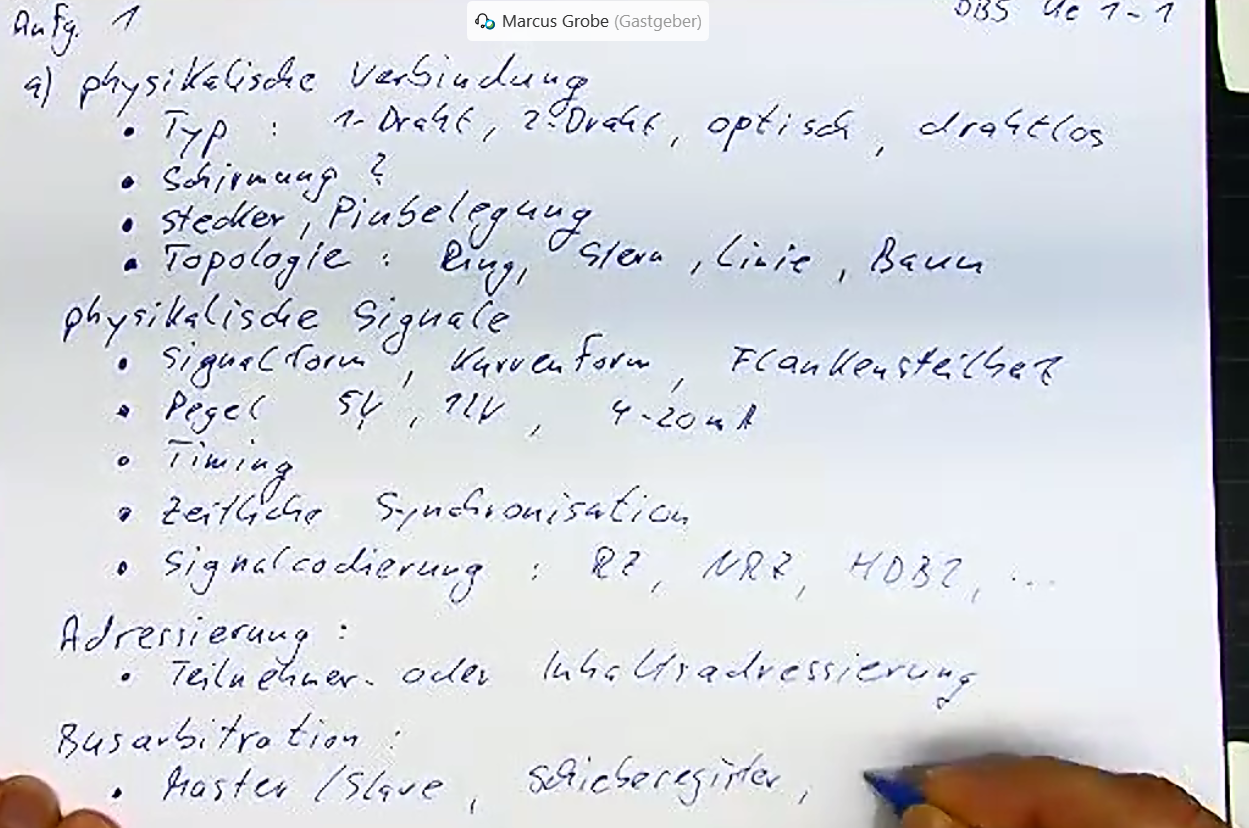 Marcus Grobe (Gastgeber)
Aufg. 1
DBS Ue 1-1
a) physikalische Verbindung
• Typ : 1-Draht, 2-Draht, optisch, drahtlos
• Schirmung ?
• Stecker, Pinbelegung
• Topologie : Ring, Stern, Linie, Baum
physikalische Signale
• Signalform, Kurvenform, Flankensteilheit
• Pegel 5V, 12V, 4-20mA
• Timing
• Zeitliche Synchronisation
• Signalcodierung : RZ, NRZ, HDBZ, ...
Adressierung :
• Teilnehmer- oder Inhaltsadressierung
Busarbitration :
• Master/Slave, Schieberegister,